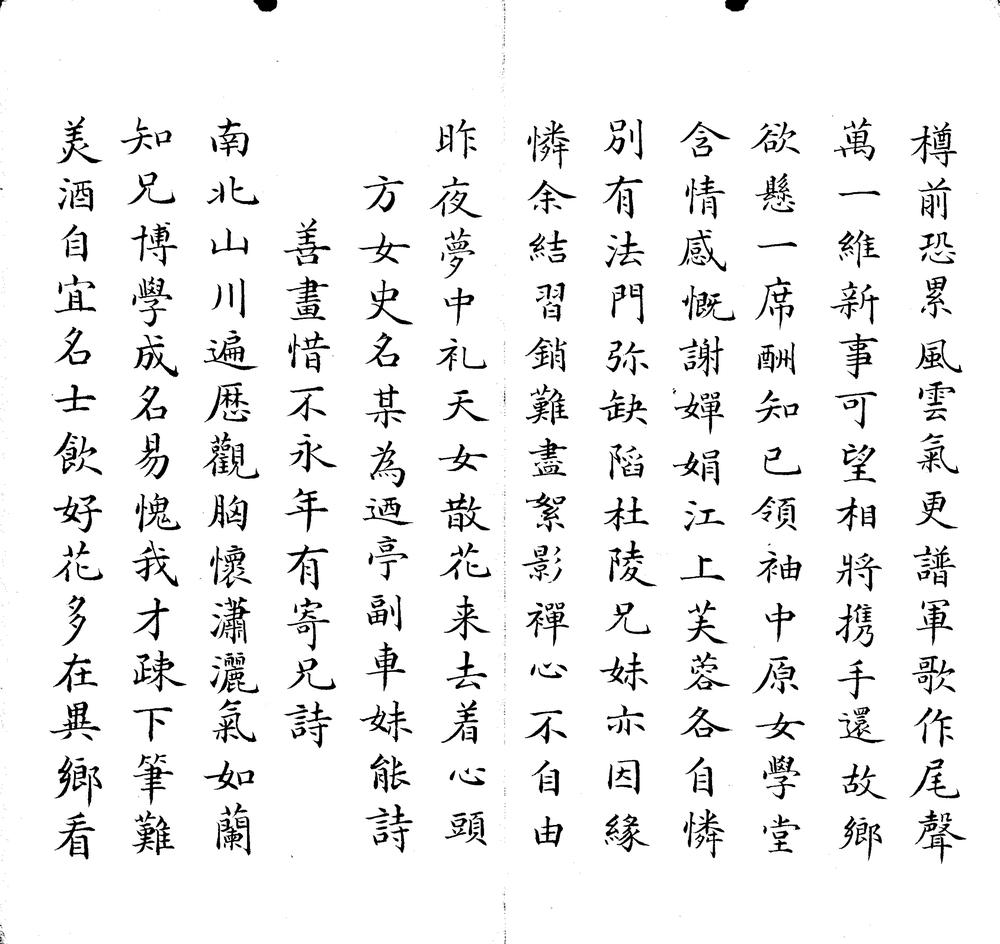 樽前恐累風雲氣更譜軍歌作尾聲
萬一維新事可望相將携手還故鄉
欲懸一席酬知已領袖中原女學堂
含情感慨謝嬋娟江上芙蓉各自憐
別有法門弥缺陷杜陵兄妹亦因緣
憐余結習銷難盡絮影禪心不自由
昨夜夢中礼天女散花来去着心頭
方女史名某為迺亭副車妹能詩
善畫惜不永年有寄兄詩
南北山川遍歷觀胸懷瀟灑氣如蘭
知兄博學成名易愧我才疎下筆難
美酒自宜名士飲好花多在異鄉看